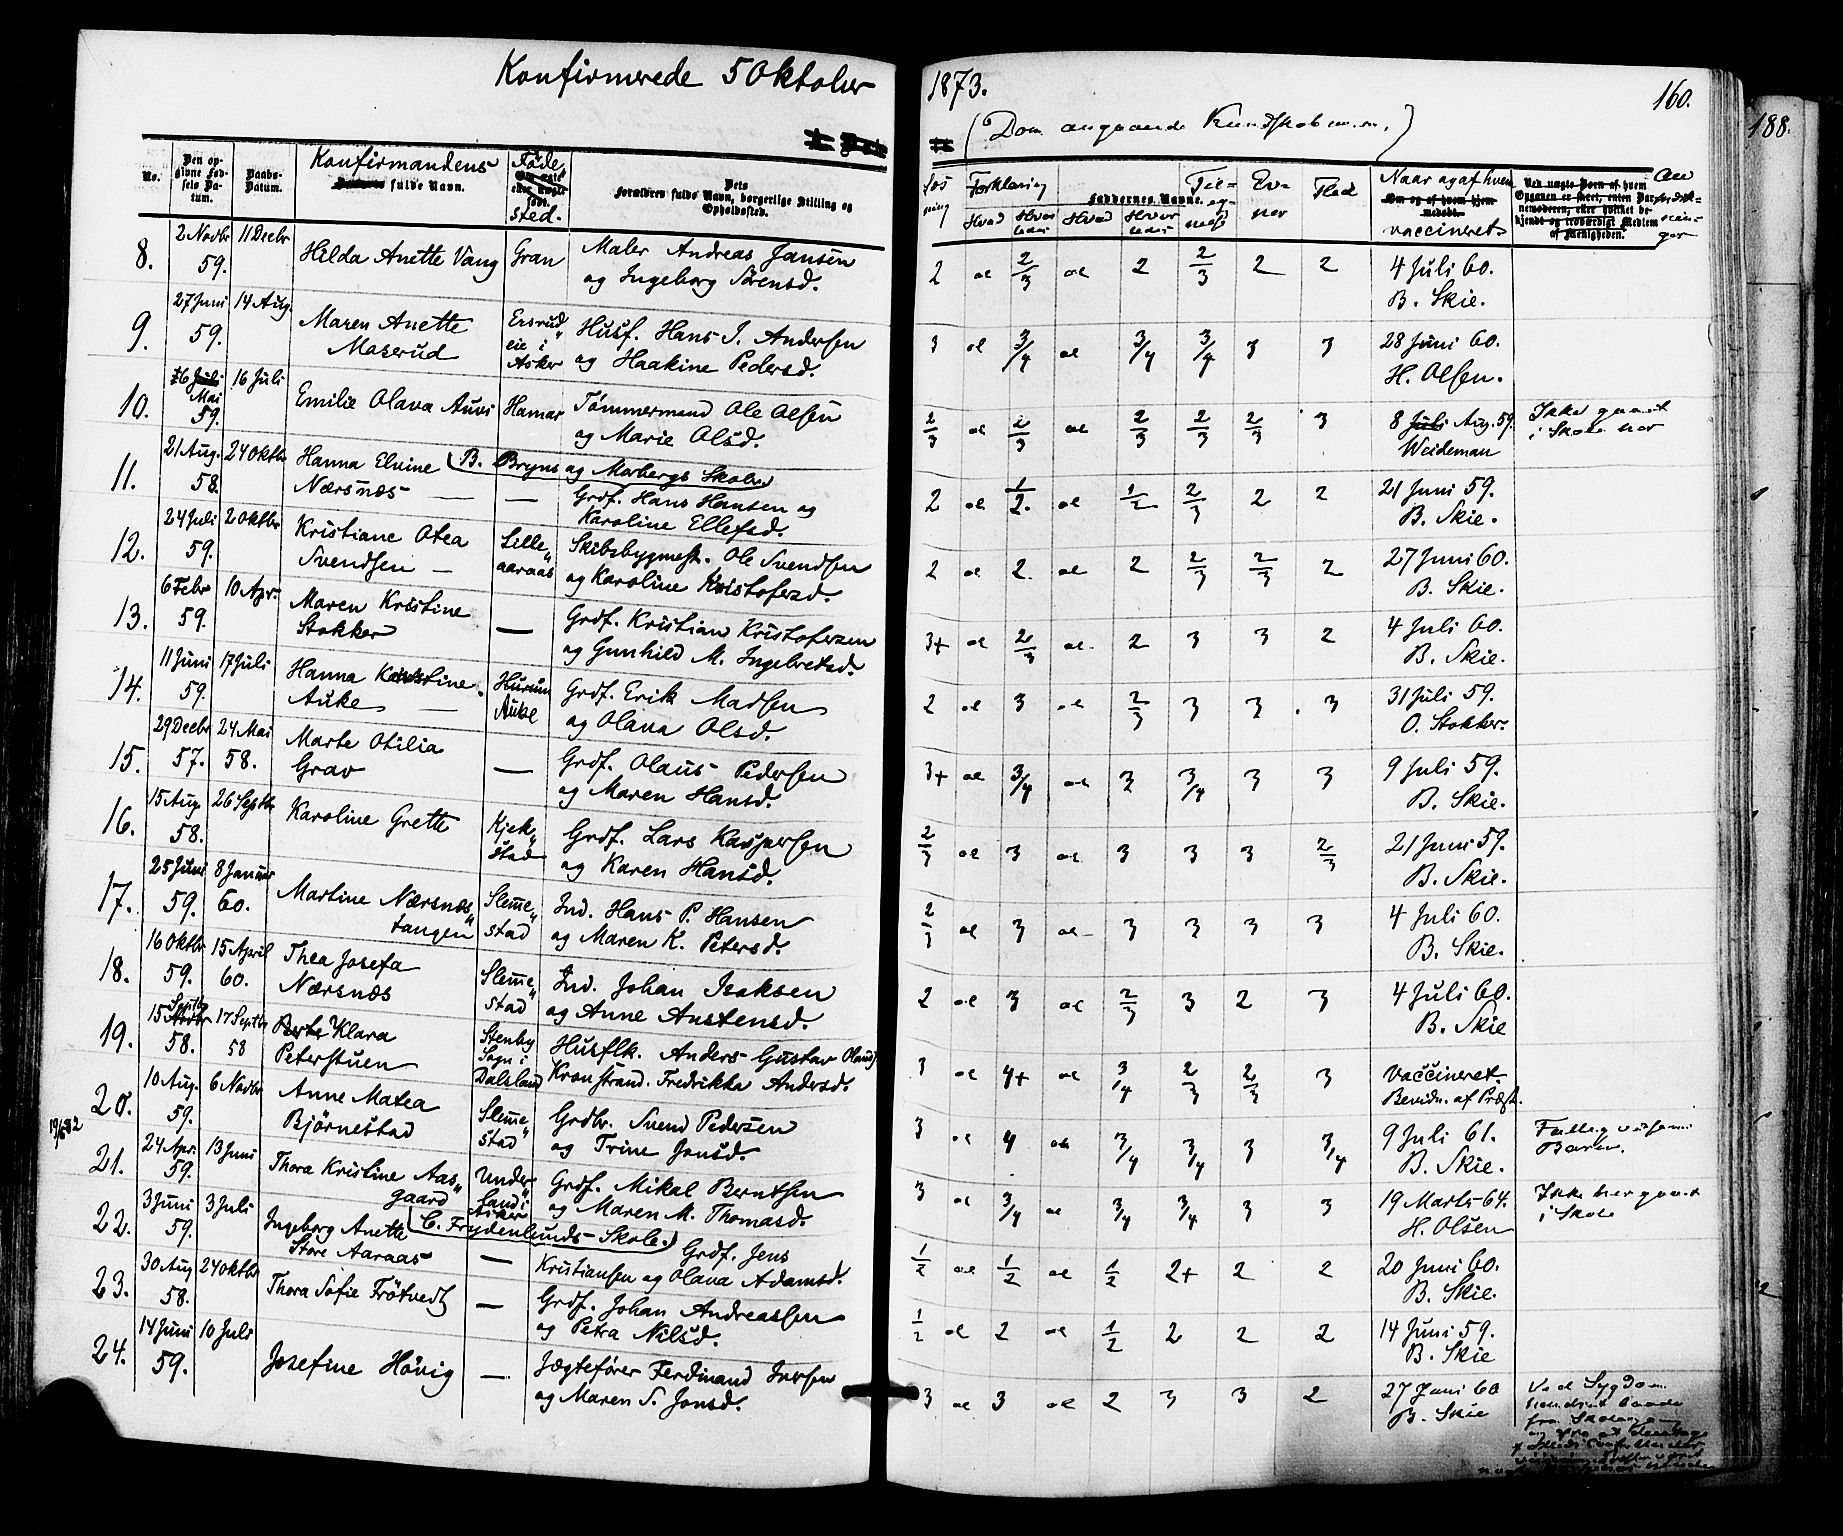 Konfirmerede 5 Oktober 1873.
160.
188.
(Dom angaaende Kundskab m.m.)
No.
Den opgivne Fødsels Datum.
Daabs-Datum.
Konfirmandens fulde Navn.
Fødested.
Dets Forældres fulde Navn, borgerlige Stilling og Opholdssted.
Forklaring
Hvad
Hvor
Hvad
Hvor
Faddernes Navne.
Flid
Naar og af hvem vaccineret
8. 2 Novbr 59. 11 Decbr Hilda Anette Vang Gran Maler Andreas Jansen
og Ingeborg Sørensd.
2 al 2/3 al 2 2/3 2 2 4 Juli 60.
B. Skie.
9. 27 Juni 59. 14 Aug. Maren Anette
Maserud
Ersrud
eie i
Asker
Husf. Hans J. Andersen
og Haakine Pedersd.
3 al 3/4 al 3/4 3/4 3 3 28 Juni 60.
H. Olsen.
10. 16 Juli
Mai
59.
16 Juli Emilie Olava Auvi Hamar Tømmermand Ole Olsen
og Marie Olsd.
2/3 al 2/3 al 2/3 2/3 2/3 3 8 Juli Aug. 59.
Weideman
Ikke gaaet
i Skole her
(B. Bryns og Morbergs Skoler)
11. 21 Aug. 58. 24 Oktbr Hanna Elvine
Nærsnæs — —
Grdf. Hans Hansen og
Karoline Ellefsd.
2 al 1/2. al 1/2 2/3 2 2 21 Juni 59.
B. Skie.
12. 24 Juli 59. 2 Oktbr Kristiane Otea
Svendsen —
Lille
aaraas
Skibsbygmestr. Ole Svendsen
og Karoline Kristofersd.
2 al 2. al 2 2/3 2/3 2 27 Juni 60.
B. Skie.
13. 6 Febr 59. 10 Apr. Maren Kristine
Stokker —
Grdf. Kristian Kristofersen
og Gunhild M. Ingebretsd.
3+ al 2/3 al. 2 3 3 2 4 Juli 60.
B. Skie.
14. 11 Juni 59. 17 Juli Hanna Karoline
Auke —
Hurum
Auke
Grdf. Erik Madsen
og Olava Olsd.
2 al 3 al 2/3 3 3 3 31 Juli 59.
O. Stokker.
15. 29 Decbr 57. 24 Mai 58. Marte Otilia
Grav —
Grdf. Olaus Pedersen
og Maren Hansd.
3+ al 3/4 al 3 3/4 3 3 9 Juli 59.
B. Skie.
16. 15 Aug. 58. 26 Septbr Karoline Grette Kjek
stad
Grdf. Lars Kaspersen
og Karen Hansd.
2/3 al 3 al 3 3 3 2/3 21 Juni 59.
B. Skie.
17. 25 Juni 59. 8 Januar 60. Martine Nærsnæs
tangen
Sleme
stad
Ind. Hans P. Hansen
og Maren K. Petersd.
2/3 al 3 al 3 3 3 3 4 Juli 60.
B. Skie.
18. 16 Oktbr 59. 15 April 60. Thea Josefa
Nærsnæs
Sleme
stad
Ind. Johan Isaksen
og Anne Austensd.
2 al 3 al 2/3 3 2 3 4 Juli 60.
B. Skie
19. 15 Septbr 58. 17 Septbr 58 Berte Klara
Peterstuen
Stenby
Sogn i
Dalsland
Husflk. Anders Gustav Olauss
Kronstrand. Fredrikka Andersd.
3 al 4+ al 3/4 2/3 2/3 3 Vaccineret
Bevidn. af Præst.
20. 10 Aug. 59. 6 Novbr Anne Matea
Bjørnestad
Sleme
stad
Grdbr. Svend Pedersen
og Trine Jonsd.
3 al 4 al 3/4 3/4 3 3/4 9 Juli 61.
B. Skie.
21. 24 Apr. 59. 13 Juni Thora Kristine Aas
gaard
Under
land i
Asker
Grdf. Mikal Berntsen
og Maren M. Thomasd.
3 al 3/4 al 3/4 3/4 3 3 19 Marts 64.
H. Olsen
Ikke her gaaet
i Skole
(C. Frydenlunds Skole.)
22. 3 Juni 59. 3 Juli Ingeborg Anette
Store Aaraas —
Grdf. Jens
Kristiansen og Olava Adamsd.
1/2 al 1/2 al 1/2 2+ 2 2 20 Juni 60.
B. Skie.
23. 30 Aug 58. 24 Oktbr Thora Sofie Frøtvedt —
Grdf. Johan Andreassen
og Petra Nilsd.
1/2 al 2 al 1/2 2 2 2 14 Juni 59.
B. Skie
24. 14 Juni 59. 10 Juli Josefine Høvig —
Jægtefører Ferdinand Iversen
og Maren S. Jonsd.
3 al 3 al 2 3 3 2 27 Juni 60
B. Skie
Ved Sygdom
hindret baade
fra Skolegang